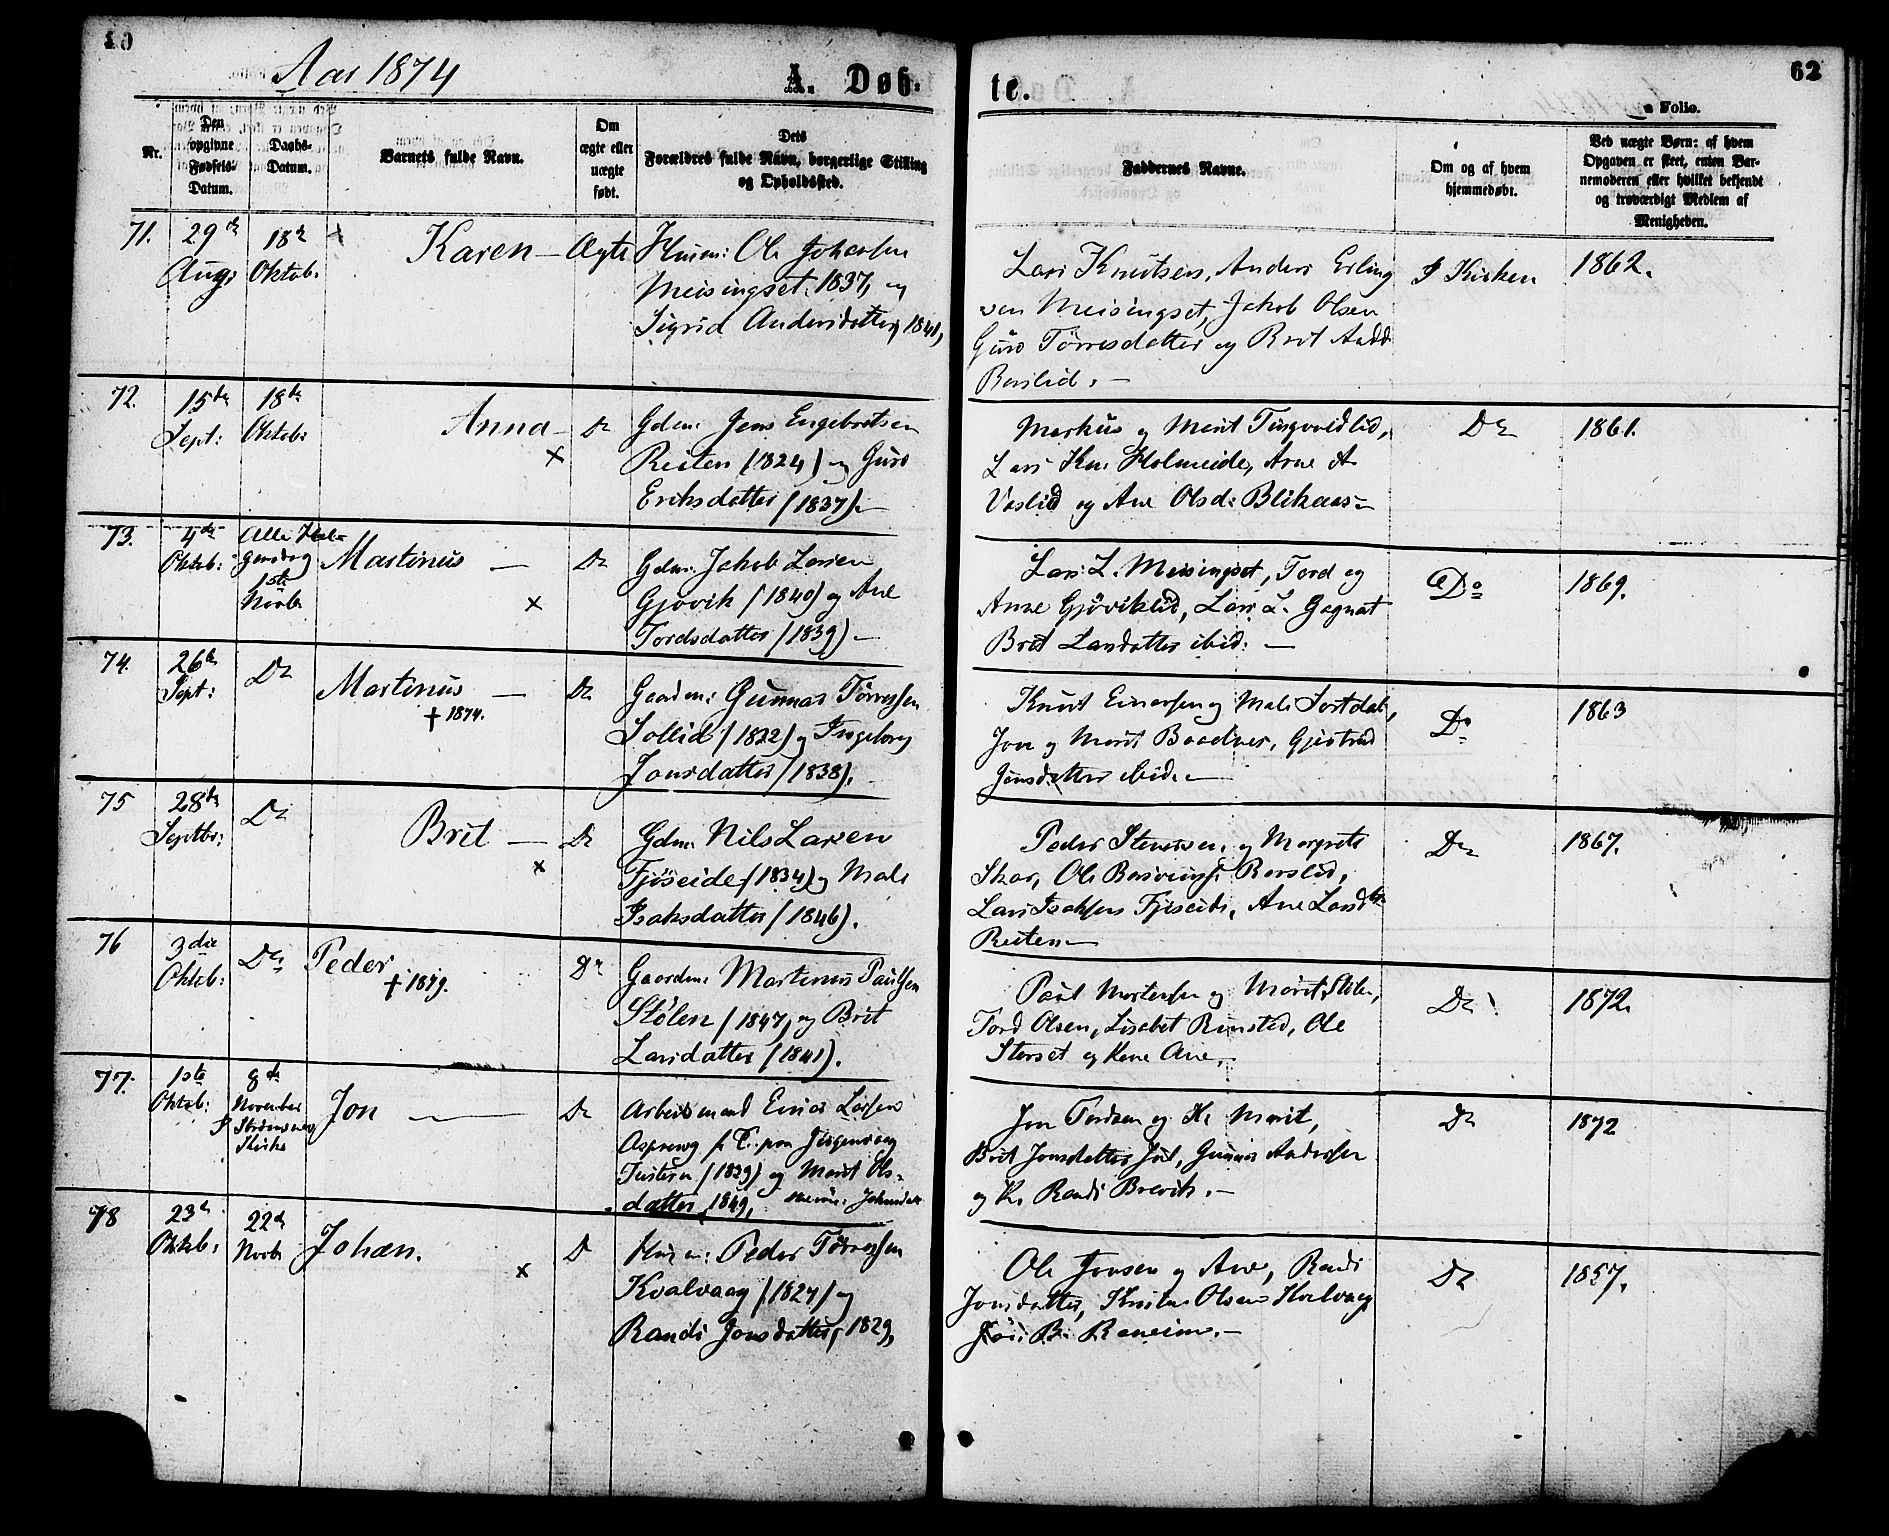 10
Aar 1874
A. Døb-
te.
62
Folio.
Nr.
Den opgivne Fødsels-Datum.
Daabs-Datum.
Barnets fulde Navn.
Om ægte eller uægte født.
Dets Forældres fulde Navn, borgerlige Stilling og Opholdssted.
Faddernes Navne.
Om og af hvem hjemmedøbt.
Ved uægte Børn: af hvem Opgaven er skeet, enten Barnemoderen eller hvilket bekjendt og troværdigt Medlem af Menigheden.
71.
29de Aug:
18de Oktob.
Karen — Ægte
Husm: Ole Johansen
Meisingset 1837, og
Sigrid Andersdatter, 1841,
Lars Knutsen, Anders Erling
sen Meisingset, Jakob Olsen
Guro Tørresdatter og Brit
Borslid. —
I Kirken
1862.
72.
15de Sept:
18de Oktob:
Anna — Do
×
Gdm: Jens Engebretsen
Reiten (1824) og Guro
Eriksdatter (1837). —
Markus og Marit Tingvoldlid,
Lars Kn. Holmeide, Arne A
Vaslid og Ane Olsd: Blikaas —
Do
1861.
73.
4de Oktob:
Alle Helgensdag 1ste Novbr
Martinus — Do
×
Gdm: Jakob Larsen
Gjøvik (1840) og Ane
Tordsdatter (1839) —
Lars L. Meisingset, Tord og
Anne Gjøviklid, Lars L. Gagnat
Brit Larsdatter ibid: —
Do
1869.
74.
26de Sept:
Do
Martinus — Do
† 1874.
Gaardm: Gunnar Tørressen
Sollid (1822) og Ingeborg
Jonsdatter (1838).
Knut Einarsen og Mali Sortdal,
Jon og Marit Baadnes, Gjertrud
Jonsdatter ibid. —
Do
1863
75
28de Septbr:
Do
Brit — Do
×
Gdm: Nils Larsen
Fjøseide (1834) og Mali
Isaksdatter (1846).
Peder Stenersen og Margrete
Skar, Ole Borslid,
Lars Isaksen Fjøseide, Ane Larsdtr
Reiten —
Do
1867.
76
3die Oktob:
Do
Peder
† 1879.
Do
Gaardm: Martinus Paulsen
Stølen (1847, og Brit
Larsdatter (1841).
Paul Mortensen og Marit Stølen,
Tord Olsen, Lisabet Rimstad, Ole
Storset og Kone Ane,
Do
1872.
77.
1ste Oktob:
8de November
I Kirke
Jon — Do
Arbeidsmand Einar Larsen
Aspevaag
Tusteren (1839) og Marit Ols-
datter 1849,
Jon Tordsen og K. Marit,
Brit Jonsdatter, Gunnar Andersen
og K. Randi Brevik. —
Do
1872
78
23de Oktob:
22de Novbr
Johan.
×
D
Husm: Peder Tørressen
Kvalvaag (1827) og
Randi Jonsdatter, 1829,
Ole Jonsen og Ane, Randi
Jonsdatter, Kristen Olsen Kvalvaag
B. Raneim. —
Do
1857.